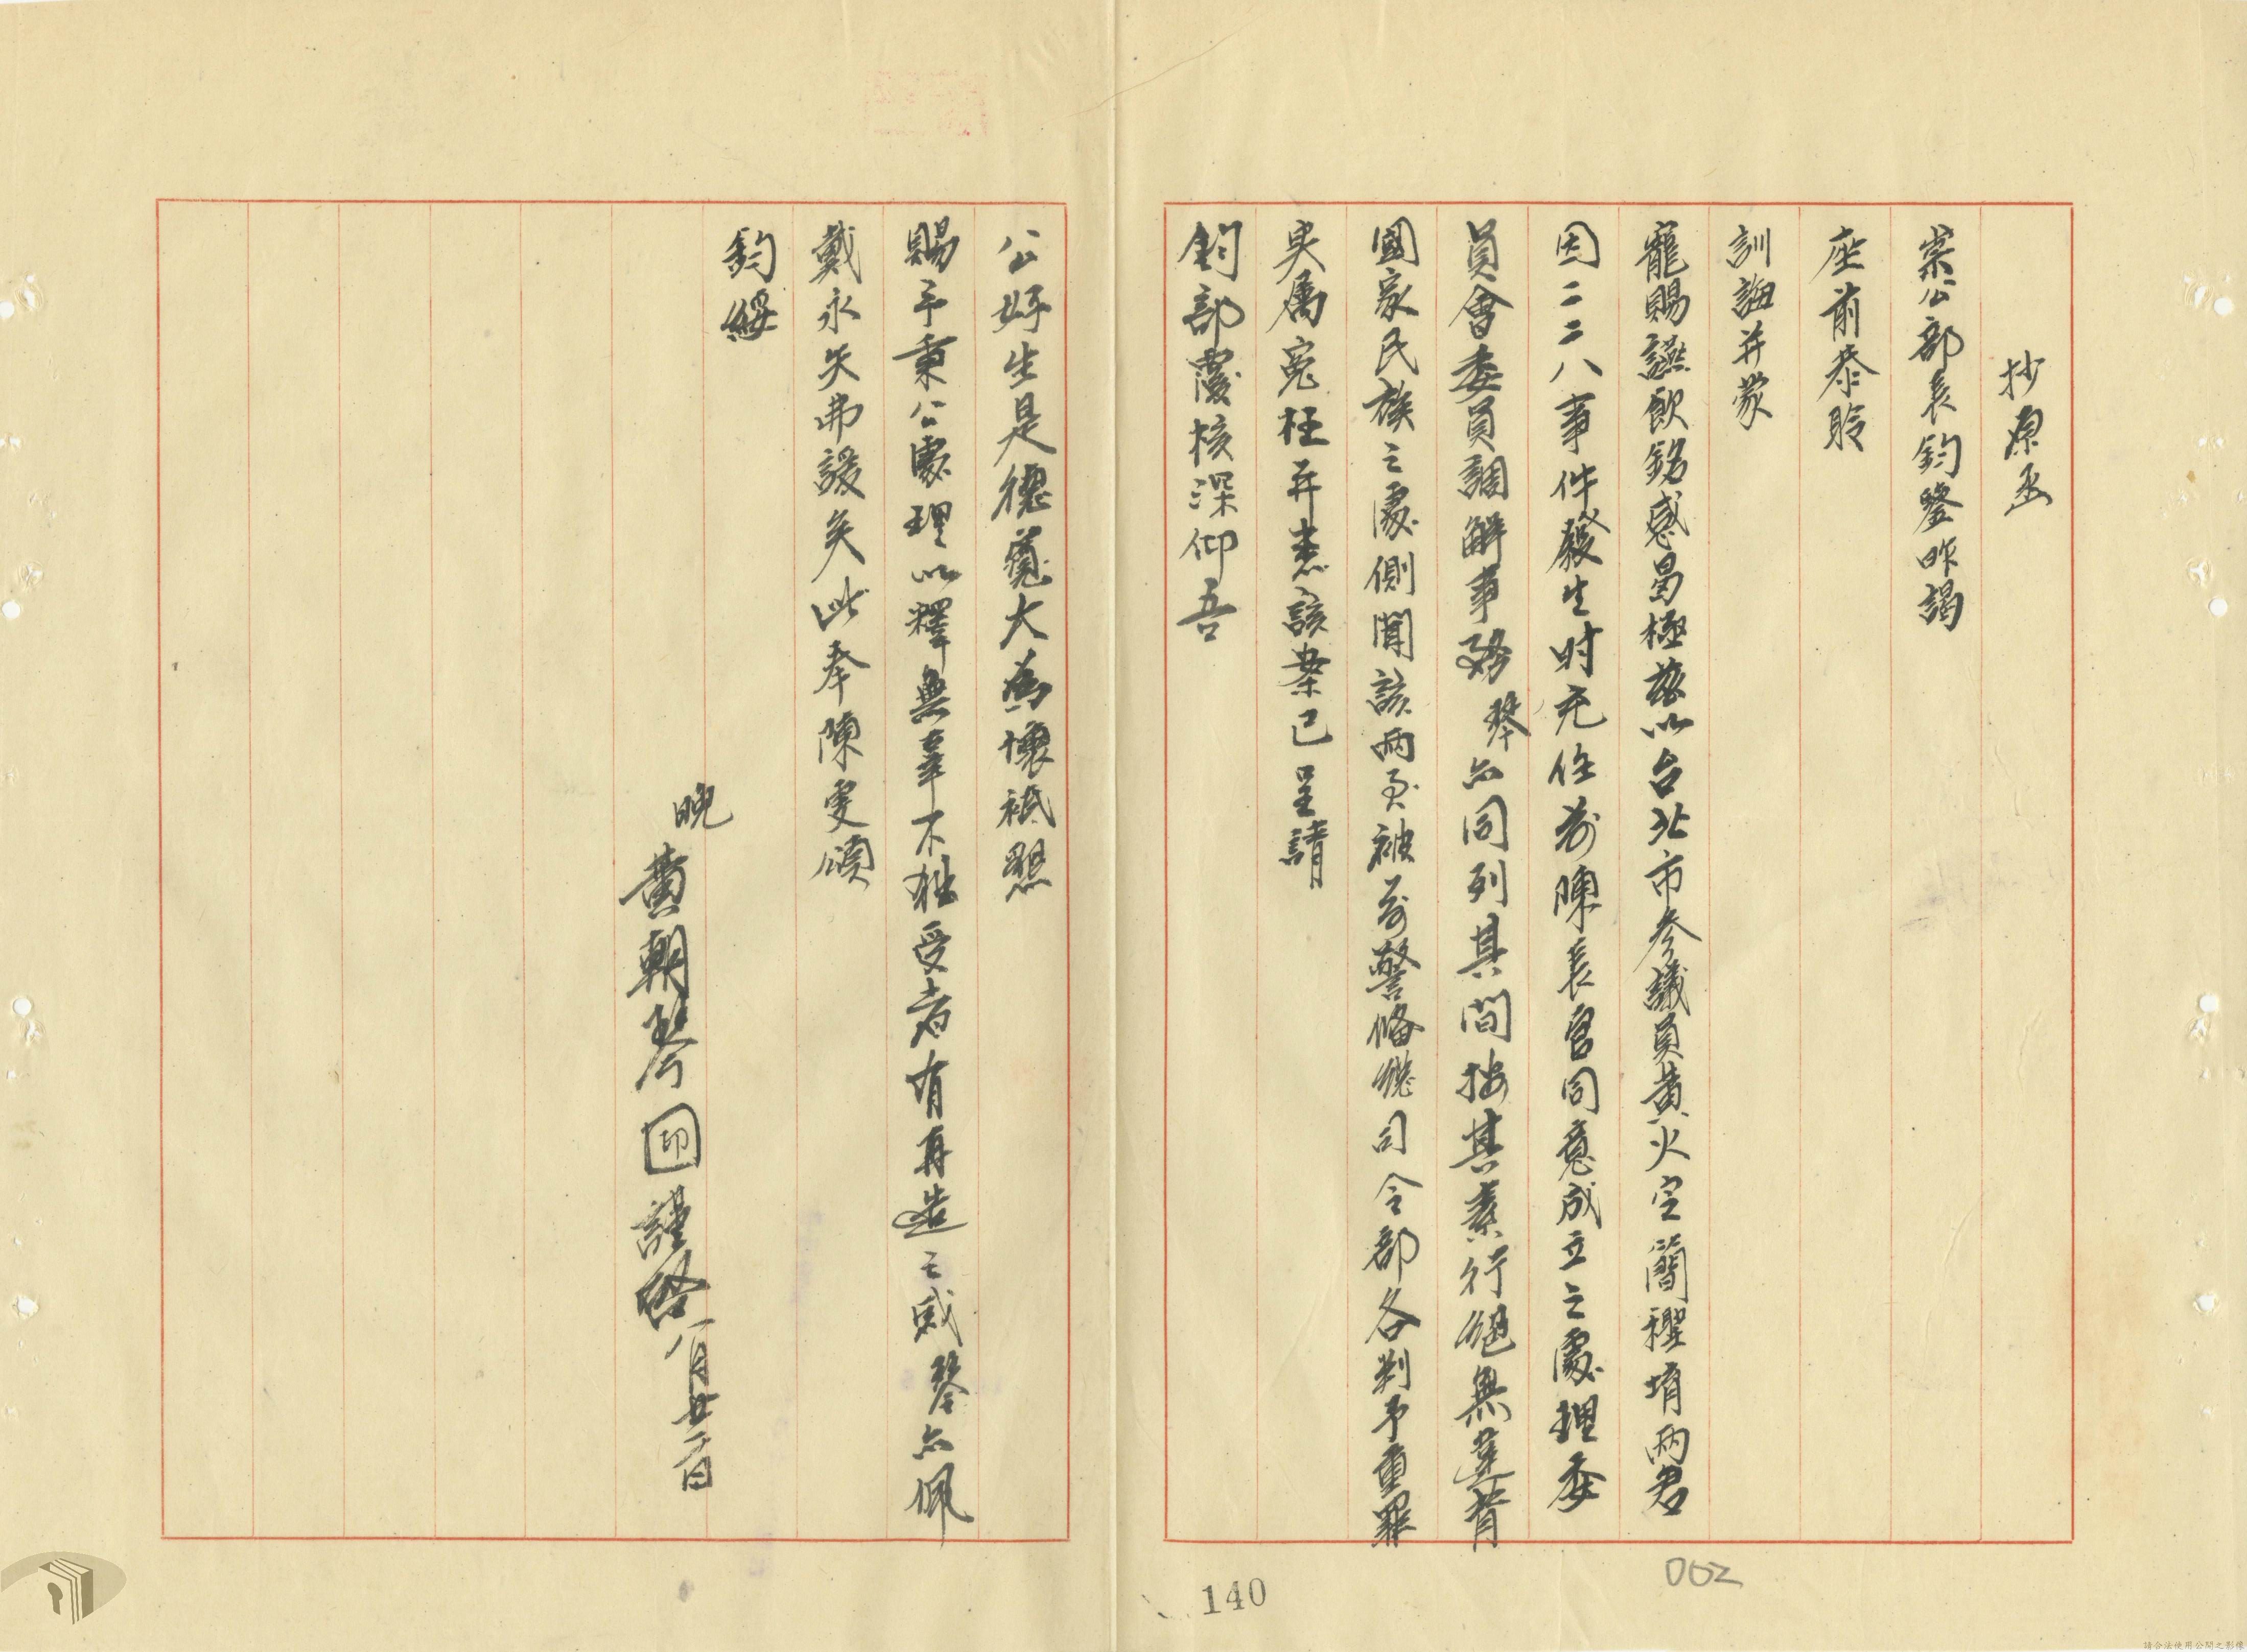 抄原函
崇公部長鈞鑒昨謁
座前恭聆
訓誨并蒙
寵賜讌飲銘感曷極茲以台北市參議員黃火定簡檉堉兩君
因二二八事件發生時充任前陳長官同意成立之處理委
員會委員調解事務琴亦同列其間按其素行絕無違背
國家民族之處側聞該兩員被前警備總司令部各判予重罪
吳屬冤枉并悉該案已呈請
鈞部覆核深仰吾
公好生是德寬大為懷祇懇
賜予秉公處理以釋無辜不獨受者有再造之感琴亦佩
戴永矢弗諼矣此奉陳雯頌
鈞綏
晚
黃朝琴印謹啓八月廿二日
140
002
請合法使用公開之影像